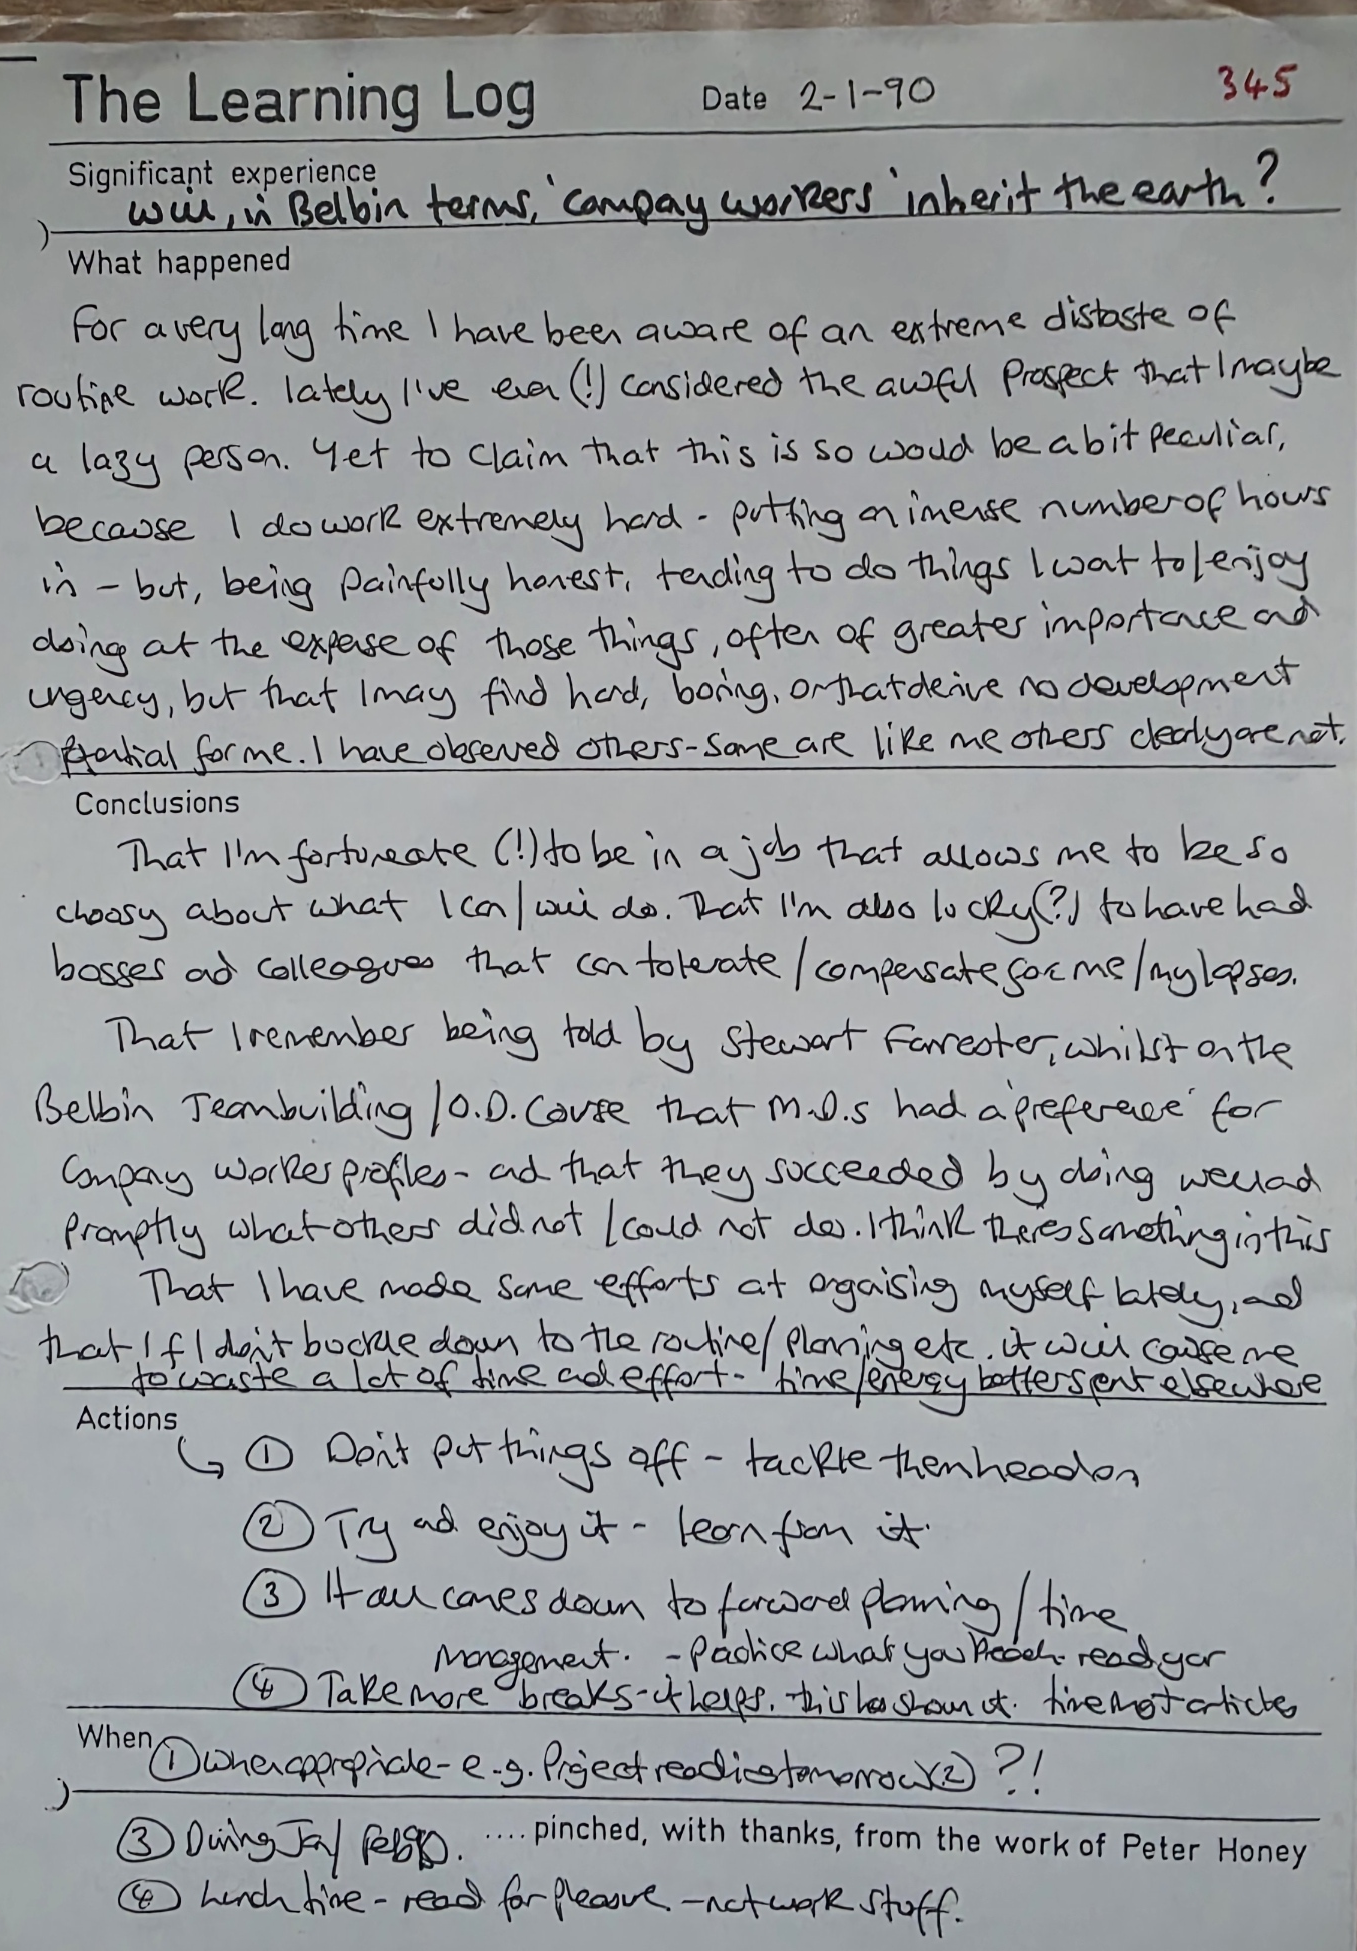 The Learning Log Date 2-1-90 345
Significant experience
Will, in Belbin terms, 'compay workers' inherit the earth?
What happened
For a very long time I have been aware of an extreme distaste of
routine work. lately I've even (!) considered the awful prospect that I maybe
a lazy person. Yet to claim that this is so would be a bit peculiar,
because I do work extremely hard - putting an imense number of hours
in - but, being painfully honest, tending to do things I want to/enjoy
doing at the expense of those things, often of greater importance and
urgency, but that I may find hard, boring, or that derive no development
potential for me. I have observed others - some are like me others clearly are not.
Conclusions
That I'm fortuneate (!) to be in a job that allows me to be so
choosy about what I can/will do. That I'm also lucky (?) to have had
bosses and colleagues that can tolerate/compensate for me/my lapses.
That I remember being told by Stewart Farrester, whilst on the
Belbin Teambuilding/O.D. Course that M.D.s had a 'preference' for
Company Worker profiles - and that they succeeded by doing well and
promptly what others did not/could not do. I think there's something in this
That I have made some efforts at orgaising myself lately, and
that if I don't buckle down to the routine/planning etc. it will cause me
to waste a lot of time and effort - time/energy better spent elsewhere
Actions
① Don't put things off - tackle them head on
② Try and enjoy it - learn from it.
③ It all comes down to forward planning/time
Management. - Practice what you Preach. read your
④ Take more breaks - it helps. this has shown it. time mgt articles
When ① When appropriate - e.g. Project readies tomorrow ② ?!
③ During Jan/Feb 90. .... pinched, with thanks, from the work of Peter Honey
④ Lunch time - read for pleasure - not work stuff.